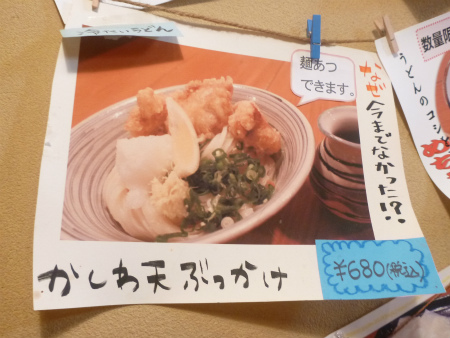 冷たいうどん
麺あつ
できます。
なぜ今までなかった!?
かしわ天ぶっかけ
¥680(税込)
数量限
うどんのコシ